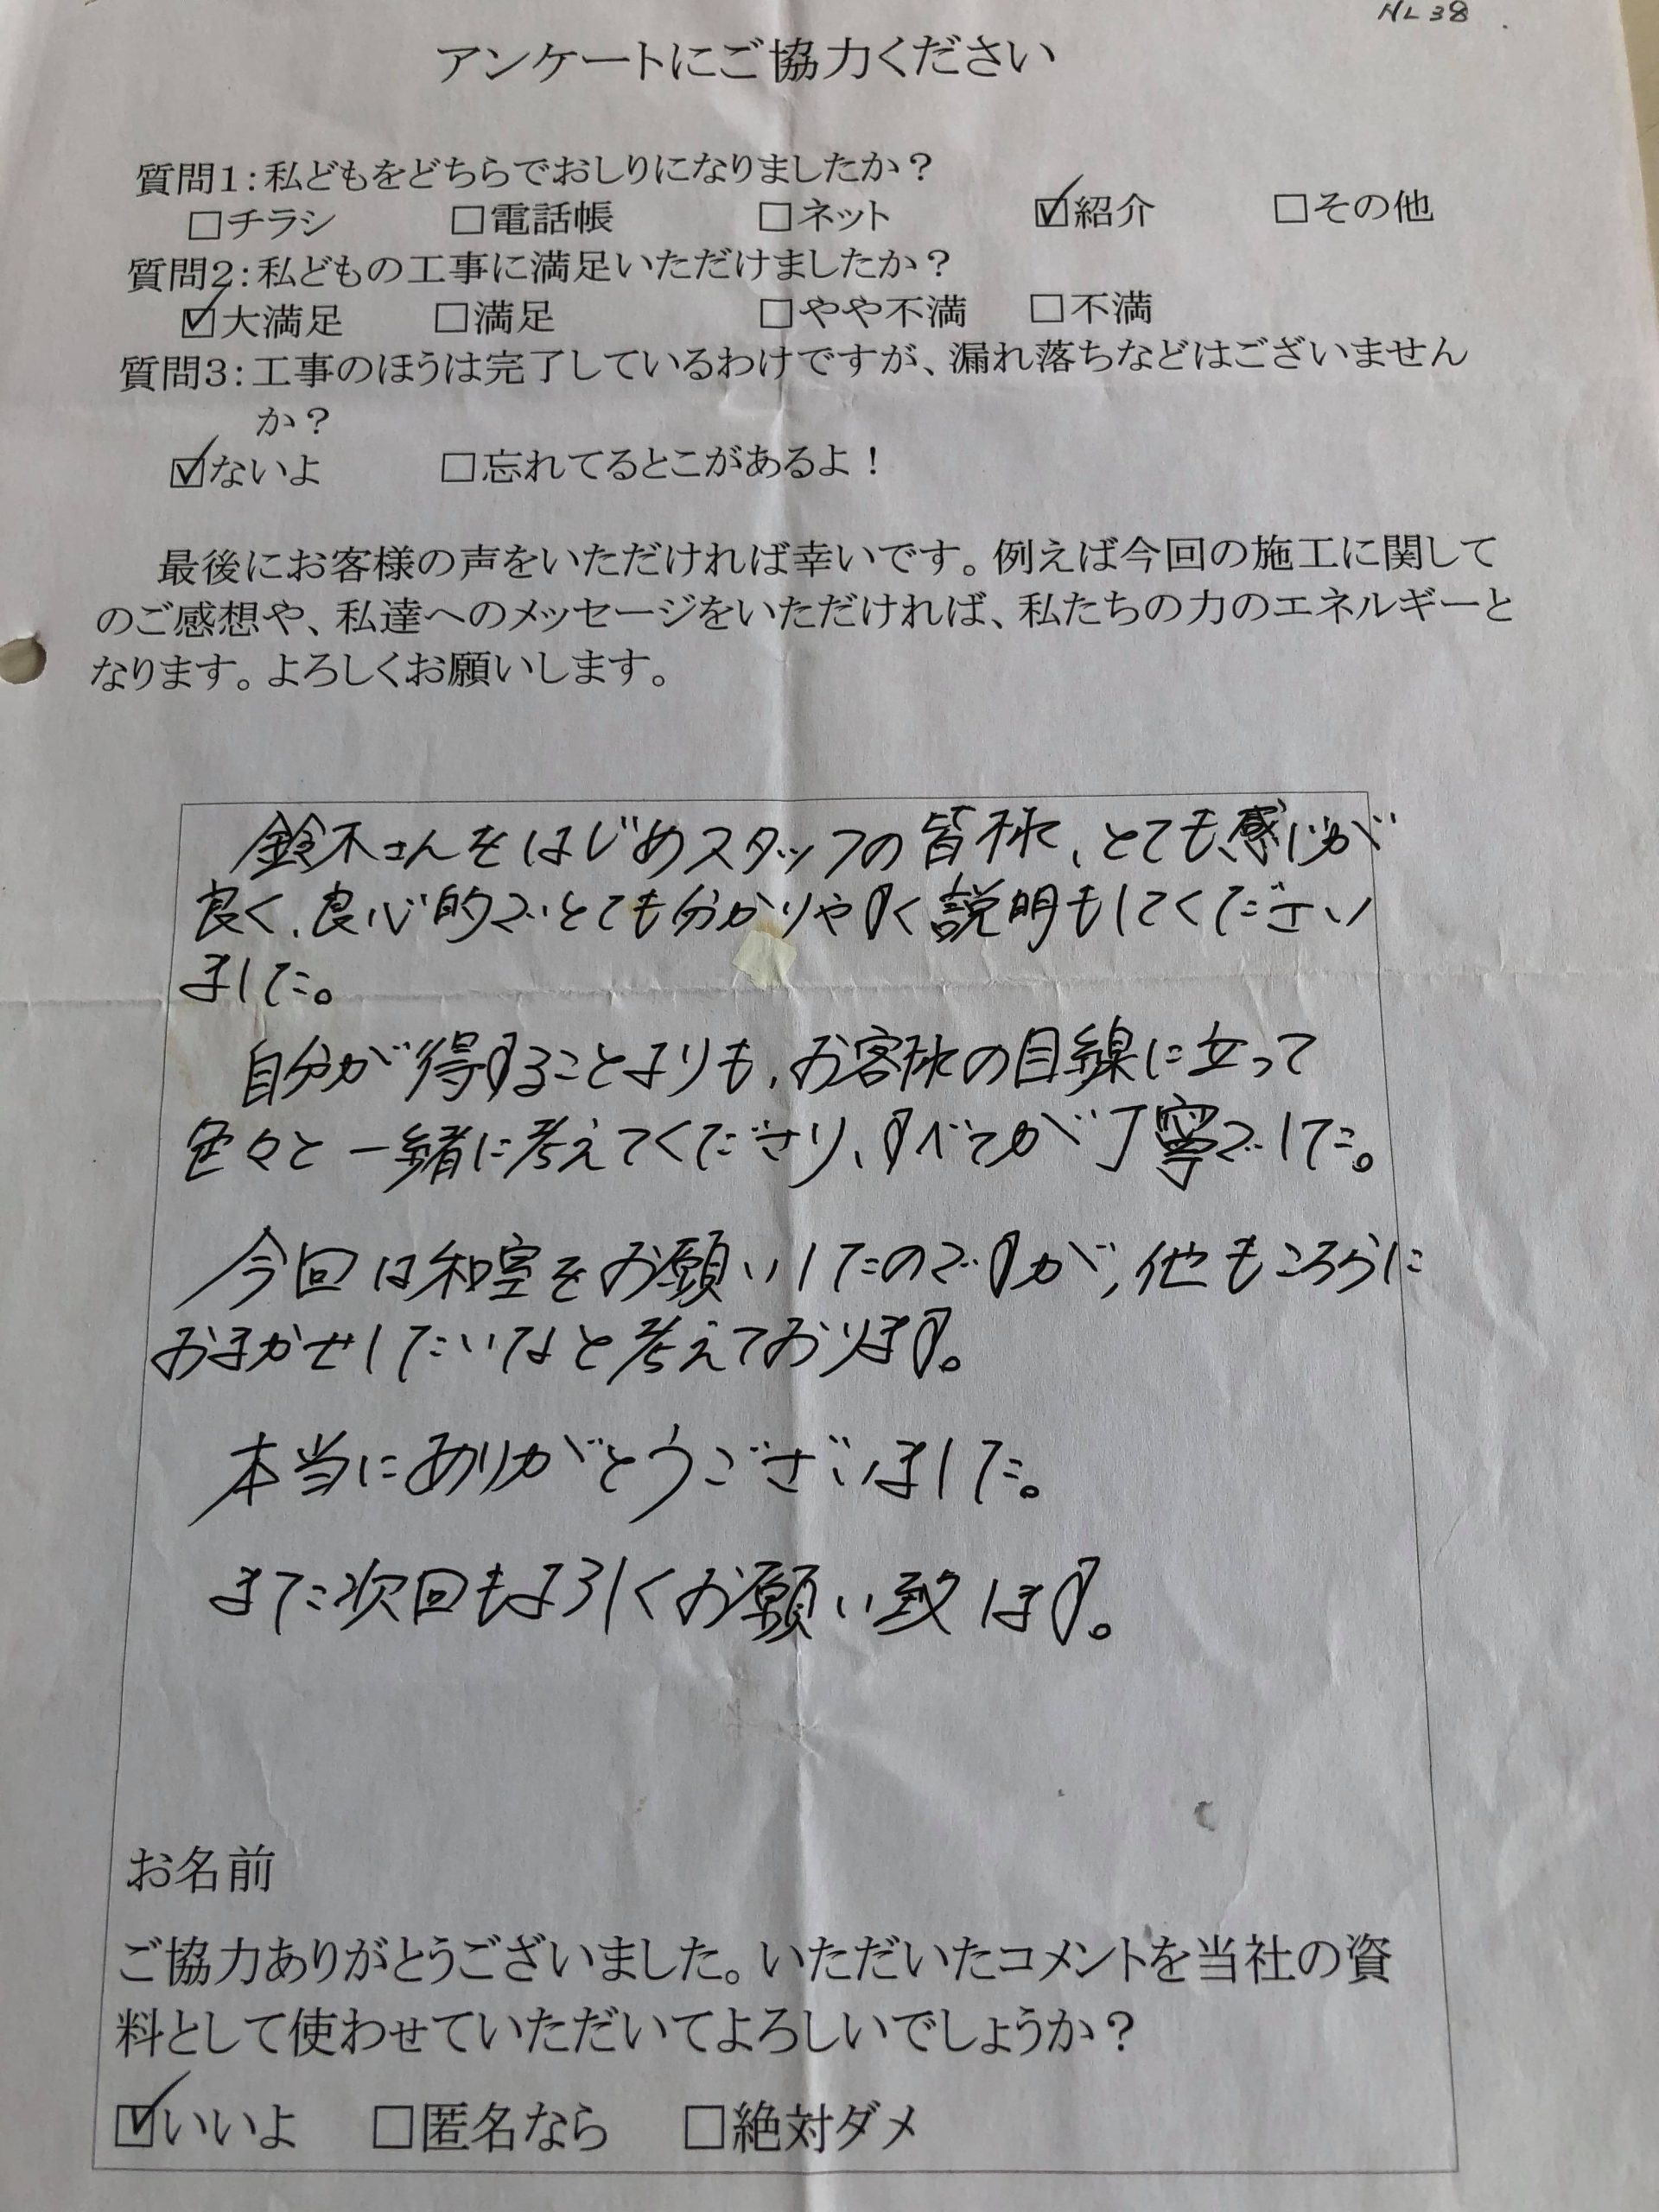 HL38
アンケートにご協力ください
質問1:私どもをどちらでおしりになりましたか?
□チラシ □電話帳 □ネット ☑紹介 □その他
質問2:私どもの工事に満足いただけましたか?
☑大満足 □満足 □やや不満 □不満
質問3:工事のほうは完了しているわけですが、漏れ落ちなどはございません
か?
☑ないよ □忘れてるとこがあるよ!
最後にお客様の声をいただければ幸いです。例えば今回の施工に関して
のご感想や、私達へのメッセージをいただければ、私たちの力のエネルギーと
なります。よろしくお願いします。
鈴木さんをはじめスタッフの皆様、とても感じが
良く、良心的でとても分かりやすく説明もしてください
ました。
自分が得することよりも、お客様の目線に立って
色々と一緒に考えてくださり、すべてが丁寧でした。
今回は和室をお願いしたのですが、他もこちらに
おまかせしたいなと考えております。
本当にありがとうございました。
また次回もよろしくお願い致します。
お名前
ご協力ありがとうございました。いただいたコメントを当社の資
料として使わせていただいてよろしいでしょうか?
☑いいよ □匿名なら □絶対ダメ